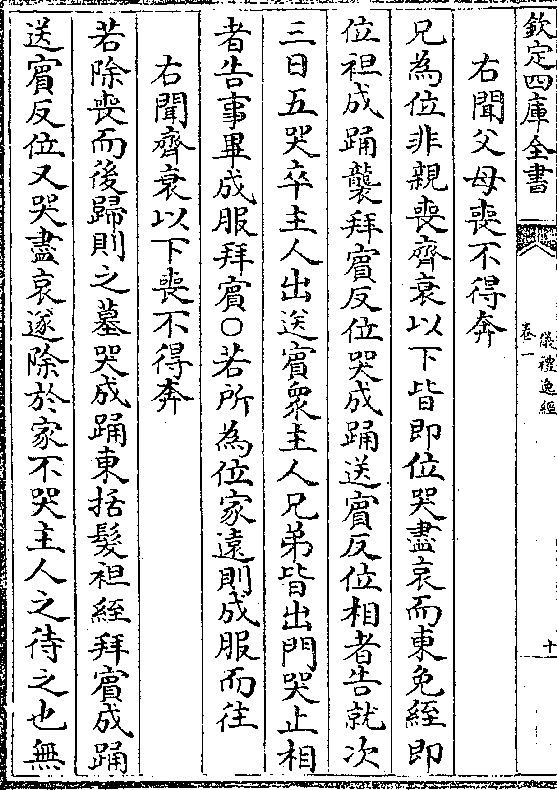 欽定四庫全書
儀禮逸經
卷一
十
右聞父母喪不得奔
兄為位非親喪齊衰以下皆即位哭盡哀而東免絰即
位袒成踊襲拜賓反位哭成踊送賓反位相者告就次
三日五哭卒主人出送賓衆主人兄弟皆出門哭止相
者告事畢成服拜賓○若所為位家遠則成服而往
右聞齊衰以下喪不得奔
若除喪而後歸則之墓哭成踊東括髮袒絰拜賓成踊
送賓反位又哭盡哀遂除於家不哭主人之待之也無